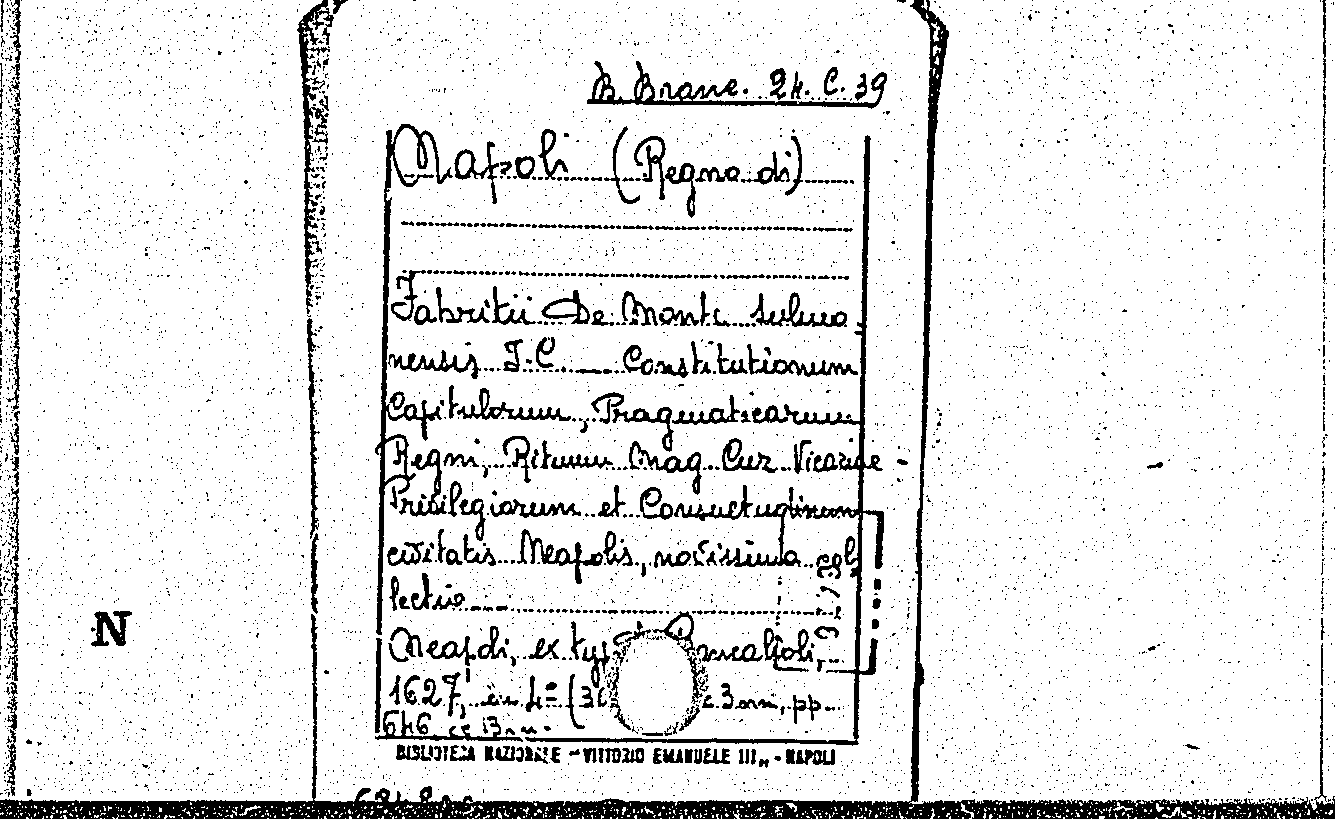 B. Branc. 24. C. 39
Napoli (Regno di)
Fabritii De Monte Sulmo-
nensis J.C. __ Constitutionum
Capitulorum, Pragmaticarum
Regni, Rituum Mag. Cur. Vicariae -
Privilegiorum et Consuetudinum
civitatis Neapolis, novissima col
lectio __
Neapoli, ex typ.
1627, in 4º (30 c. 3 nn, pp.
646 cc 13 nn.
BIBLIOTECA NAZIONALE - "VITTORIO EMANUELE III" - NAPOLI
N